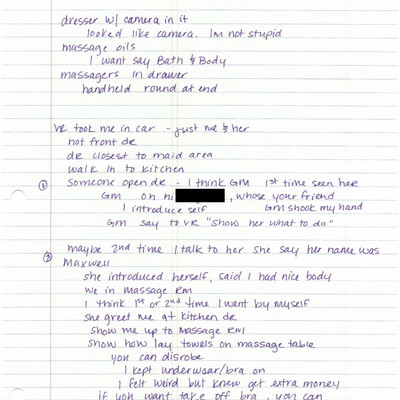 dresser w/ camera in it
looked like camera. Im not stupid
massage oils
I want say Bath & Body
massagers in drawer
handheld round at end
VR took me in car - just me & her
not front dr
dr closest to maid area
walk in to kitchen
① Someone open dr - I think GM 1st time seen her
GM oh hi , whose your friend
I introduce self GM shook my hand
GM say to VR "Show her what to do"
② maybe 2nd time I talk to her she say her name was
Maxwell
she introduced herself, said I had nice body
we in massage RM
I think 1st or 2nd time I went by myself
she greet me at kitchen dr
show me up to massage RM
show how lay towels on massage table
you can disrobe
I kept underwear/bra on
I felt weird but knew get extra money
if you want take off bra, you can